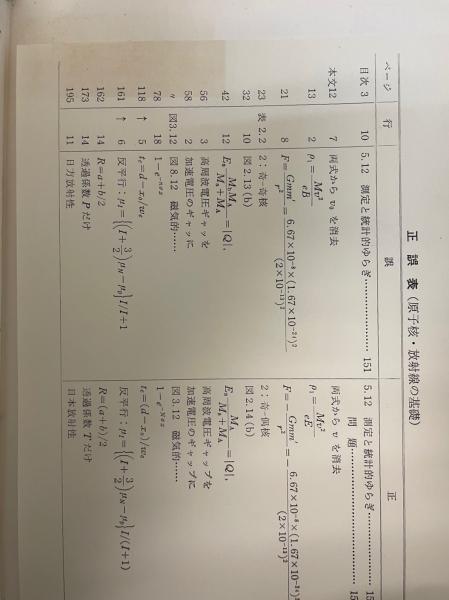 正誤表（原子核・放射線の基礎）
ページ 行 誤 正
目次 3 10 5.12 測定と統計的ゆらぎ………………… 151 5.12 測定と統計的ゆらぎ…………………
問題…………………
本文12 7 両式から v₀ を消去 両式から v を消去
13 2 ρ₁=Mv²/eB ρ₁=Mv²/eE
21 8 F=Gmm′/r²=6.67×10⁻⁸×(1.67×10⁻²⁴)²/(2×10⁻¹³)² F=−Gmm′/r²=−6.67×10⁻⁸×(1.67×10⁻²⁴)²/(2×10⁻¹³)²
23 表 2.2 2：奇-奇核 2：奇-偶核
32 10 図 2.13 (b) 図 2.14 (b)
42 12 Eₐ MₐM_A/(Mₐ+M_A)=|Q|, Eₐ M_A/(Mₐ+M_A)=|Q|,
56 3 高周波電圧ギャッを 高周波電圧ギャップを
58 2 加速電圧のギャッに 加速電圧のギャップに
〃 図3.12 図 8.12 磁気的…… 図 3.12 磁気的……
78 18
118 ↑ 5
161 ↑ 6 反平行：
162 14 R=a+b/2 R=(a+b)/2
173 14 透過係数 P だけ 透過係数 T だけ
195 11 日力放射性 日本放射性